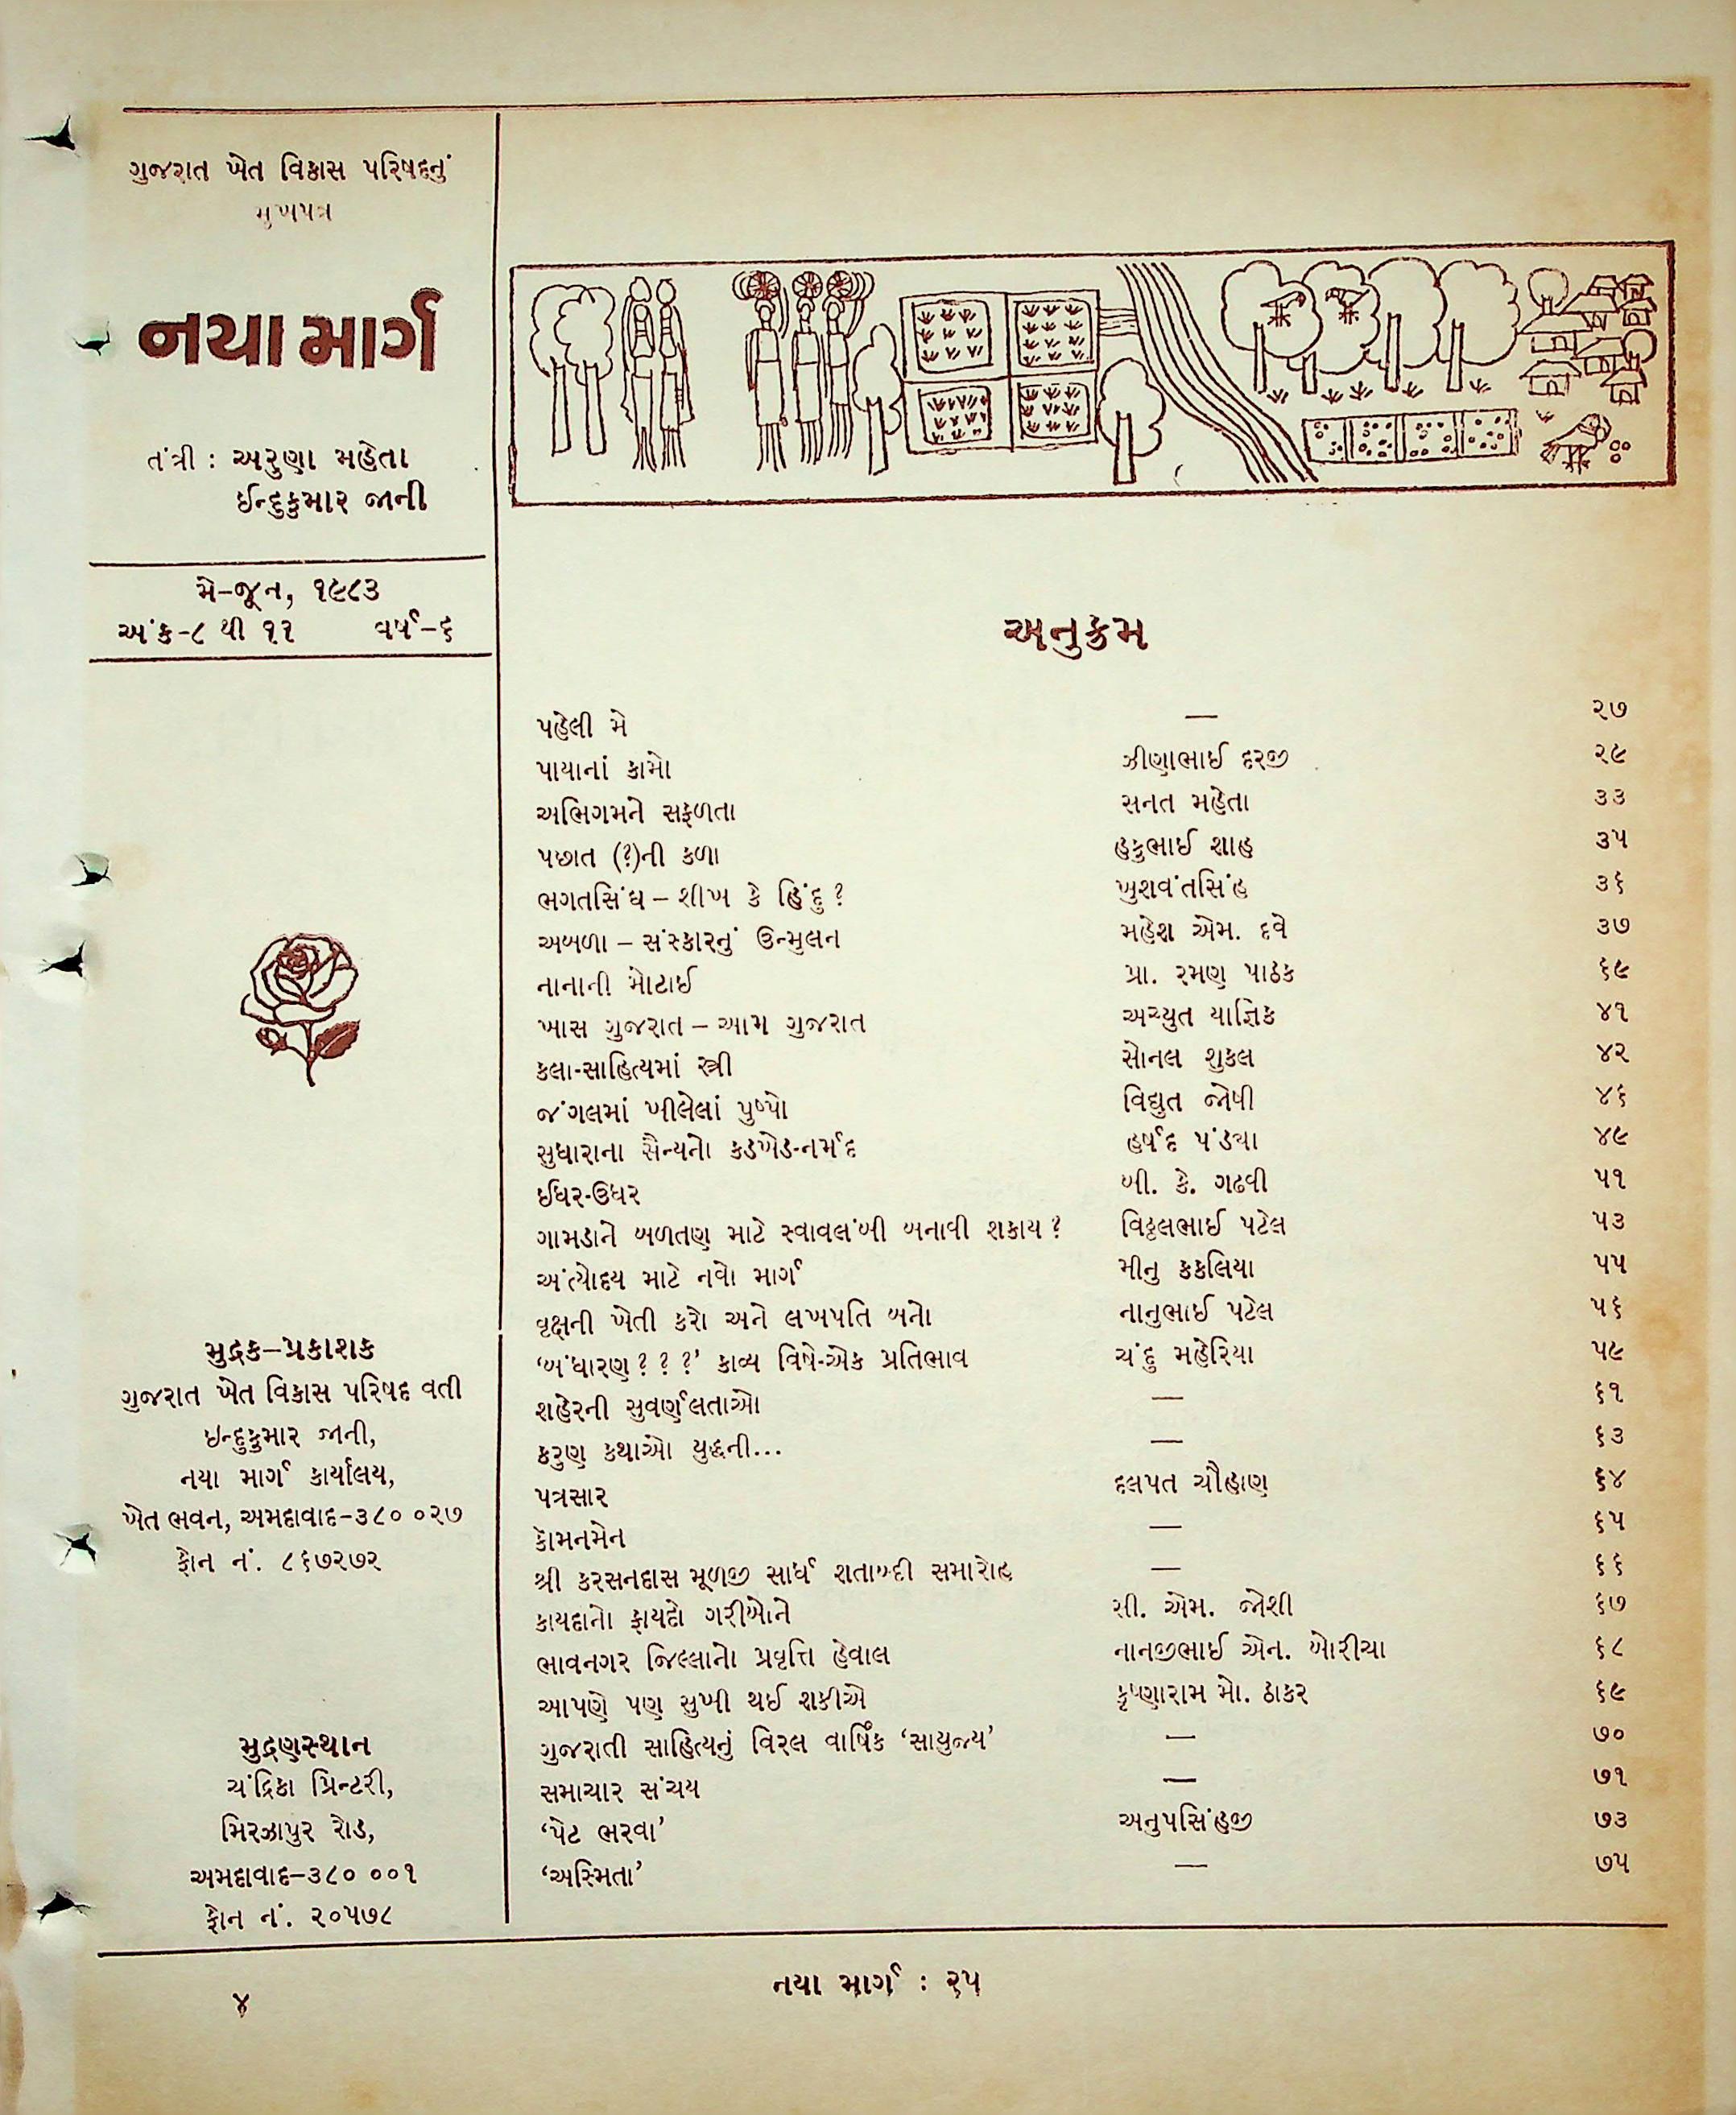 ગુજરાત ખેત વિકાસ પરિષદનું
મુખપત્ર
નયા માર્ગ
તંત્રી : અરુણા મહેતા
ઈન્દુકુમાર જાની
મે–જૂન, ૧૯૮૩
અંક–૮ થી ૧૧ વર્ષ–૬
મુદ્રક–પ્રકાશક
ગુજરાત ખેત વિકાસ પરિષદ વતી
ઇન્દુકુમાર જાની,
નયા માર્ગ કાર્યાલય,
ખેત ભવન, અમદાવાદ–૩૮૦ ૦૨૭
ફોન નં. ૮૬૭૨૭૨
મુદ્રણસ્થાન
ચંદ્રિકા પ્રિન્ટરી,
મિરઝાપુર રોડ,
અમદાવાદ–૩૮૦ ૦૦૧
ફોન નં. ૨૦૫૭૮
અનુક્રમ
પહેલી મે — ૨૭
પાયાનાં કામો ઝીણાભાઈ દરજી ૨૯
અભિગમને સફળતા સનત મહેતા ૩૩
પછાત (?)ની કળા હકુભાઈ શાહ ૩૫
ભગતસિંઘ – શીખ કે હિંદુ ? ખુશવંતસિંહ ૩૬
અબળા – સંસ્કારનું ઉન્મુલન મહેશ એમ. દવે ૩૭
નાનાની મોટાઈ પ્રા. રમણ પાઠક ૬૯
ખાસ ગુજરાત – આમ ગુજરાત અચ્યુત યાજ્ઞિક ૪૧
કલા-સાહિત્યમાં સ્ત્રી સોનલ શુકલ ૪૨
જંગલમાં ખીલેલાં પુષ્પો વિદ્યુત જોષી ૪૬
સુધારાના સૈન્યનો કડખેડ-નર્મદ હર્ષદ પંડ્યા ૪૯
ઈધર-ઉધર બી. કે. ગઢવી ૫૧
ગામડાને બળતણ માટે સ્વાવલંબી બનાવી શકાય ? વિઠ્ઠલભાઈ પટેલ ૫૩
અંત્યોદય માટે નવો માર્ગ મીનુ કકલિયા ૫૫
વૃક્ષની ખેતી કરો અને લખપતિ બનો નાનુભાઈ પટેલ ૫૬
‘બંધારણ ? ? ?’ કાવ્ય વિષે-એક પ્રતિભાવ ચંદુ મહેરિયા ૫૯
શહેરની સુવર્ણલતાઓ — ૬૧
કરુણ કથાઓ યુદ્ધની... — ૬૩
પત્રસાર દલપત ચૌહાણ ૬૪
કોમનમેન — ૬૫
શ્રી કરસનદાસ મૂળજી સાર્ધ શતાબ્દી સમારોહ — ૬૬
કાયદાનો ફાયદો ગરીબોને સી. એમ. જોશી ૬૭
ભાવનગર જિલ્લાનો પ્રવૃત્તિ હેવાલ નાનજીભાઈ એન. બોરીચા ૬૮
આપણે પણ સુખી થઈ શકીએ કૃષ્ણારામ મો. ઠાકર ૬૯
ગુજરાતી સાહિત્યનું વિરલ વાર્ષિક ‘સાયુજ્ય’ — ૭૦
સમાચાર સંચય — ૭૧
‘પેટ ભરવા’ અનુપસિંહજી ૭૩
‘અસ્મિતા’ — ૭૫
નયા માર્ગ : ૨૫
૪